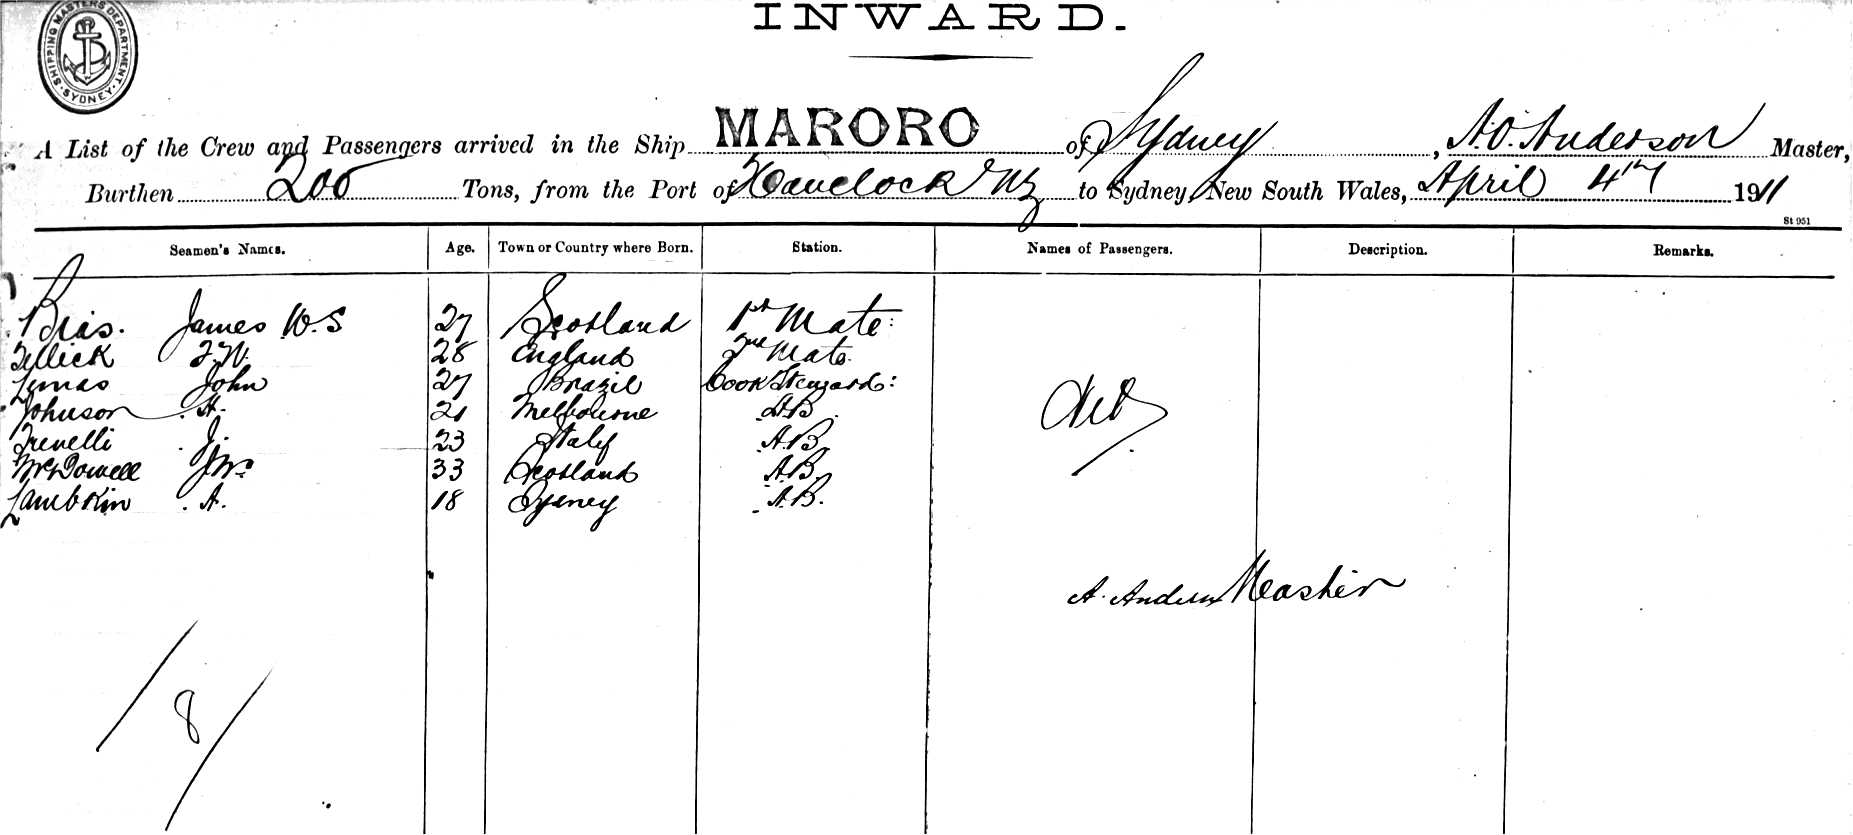 INWARD.
SHIPPING MASTERS DEPARTMENT. SYDNEY
A List of the Crew and Passengers arrived in the Ship MARORO of Sydney, A.O. Anderson Master,
Burthen 200 Tons, from the Port of Havelock NZ to Sydney, New South Wales, April 4th 1911
St 951
Seamen's Names. Age. Town or Country where Born. Station. Names of Passengers. Description. Remarks.
Bias. James W.S 27 Scotland 1st Mate
Tellick F.W. 28 England 2nd Mate
Lemas John 27 Brazil Cook Steward
Johnson A. 21 Melbourne AB
J. 23 Italy A.B
McDowell Jno 33 Scotland A.B
Lambkin A. 18 Sydney A.B.
Nil
A. Anderson Master
/8/